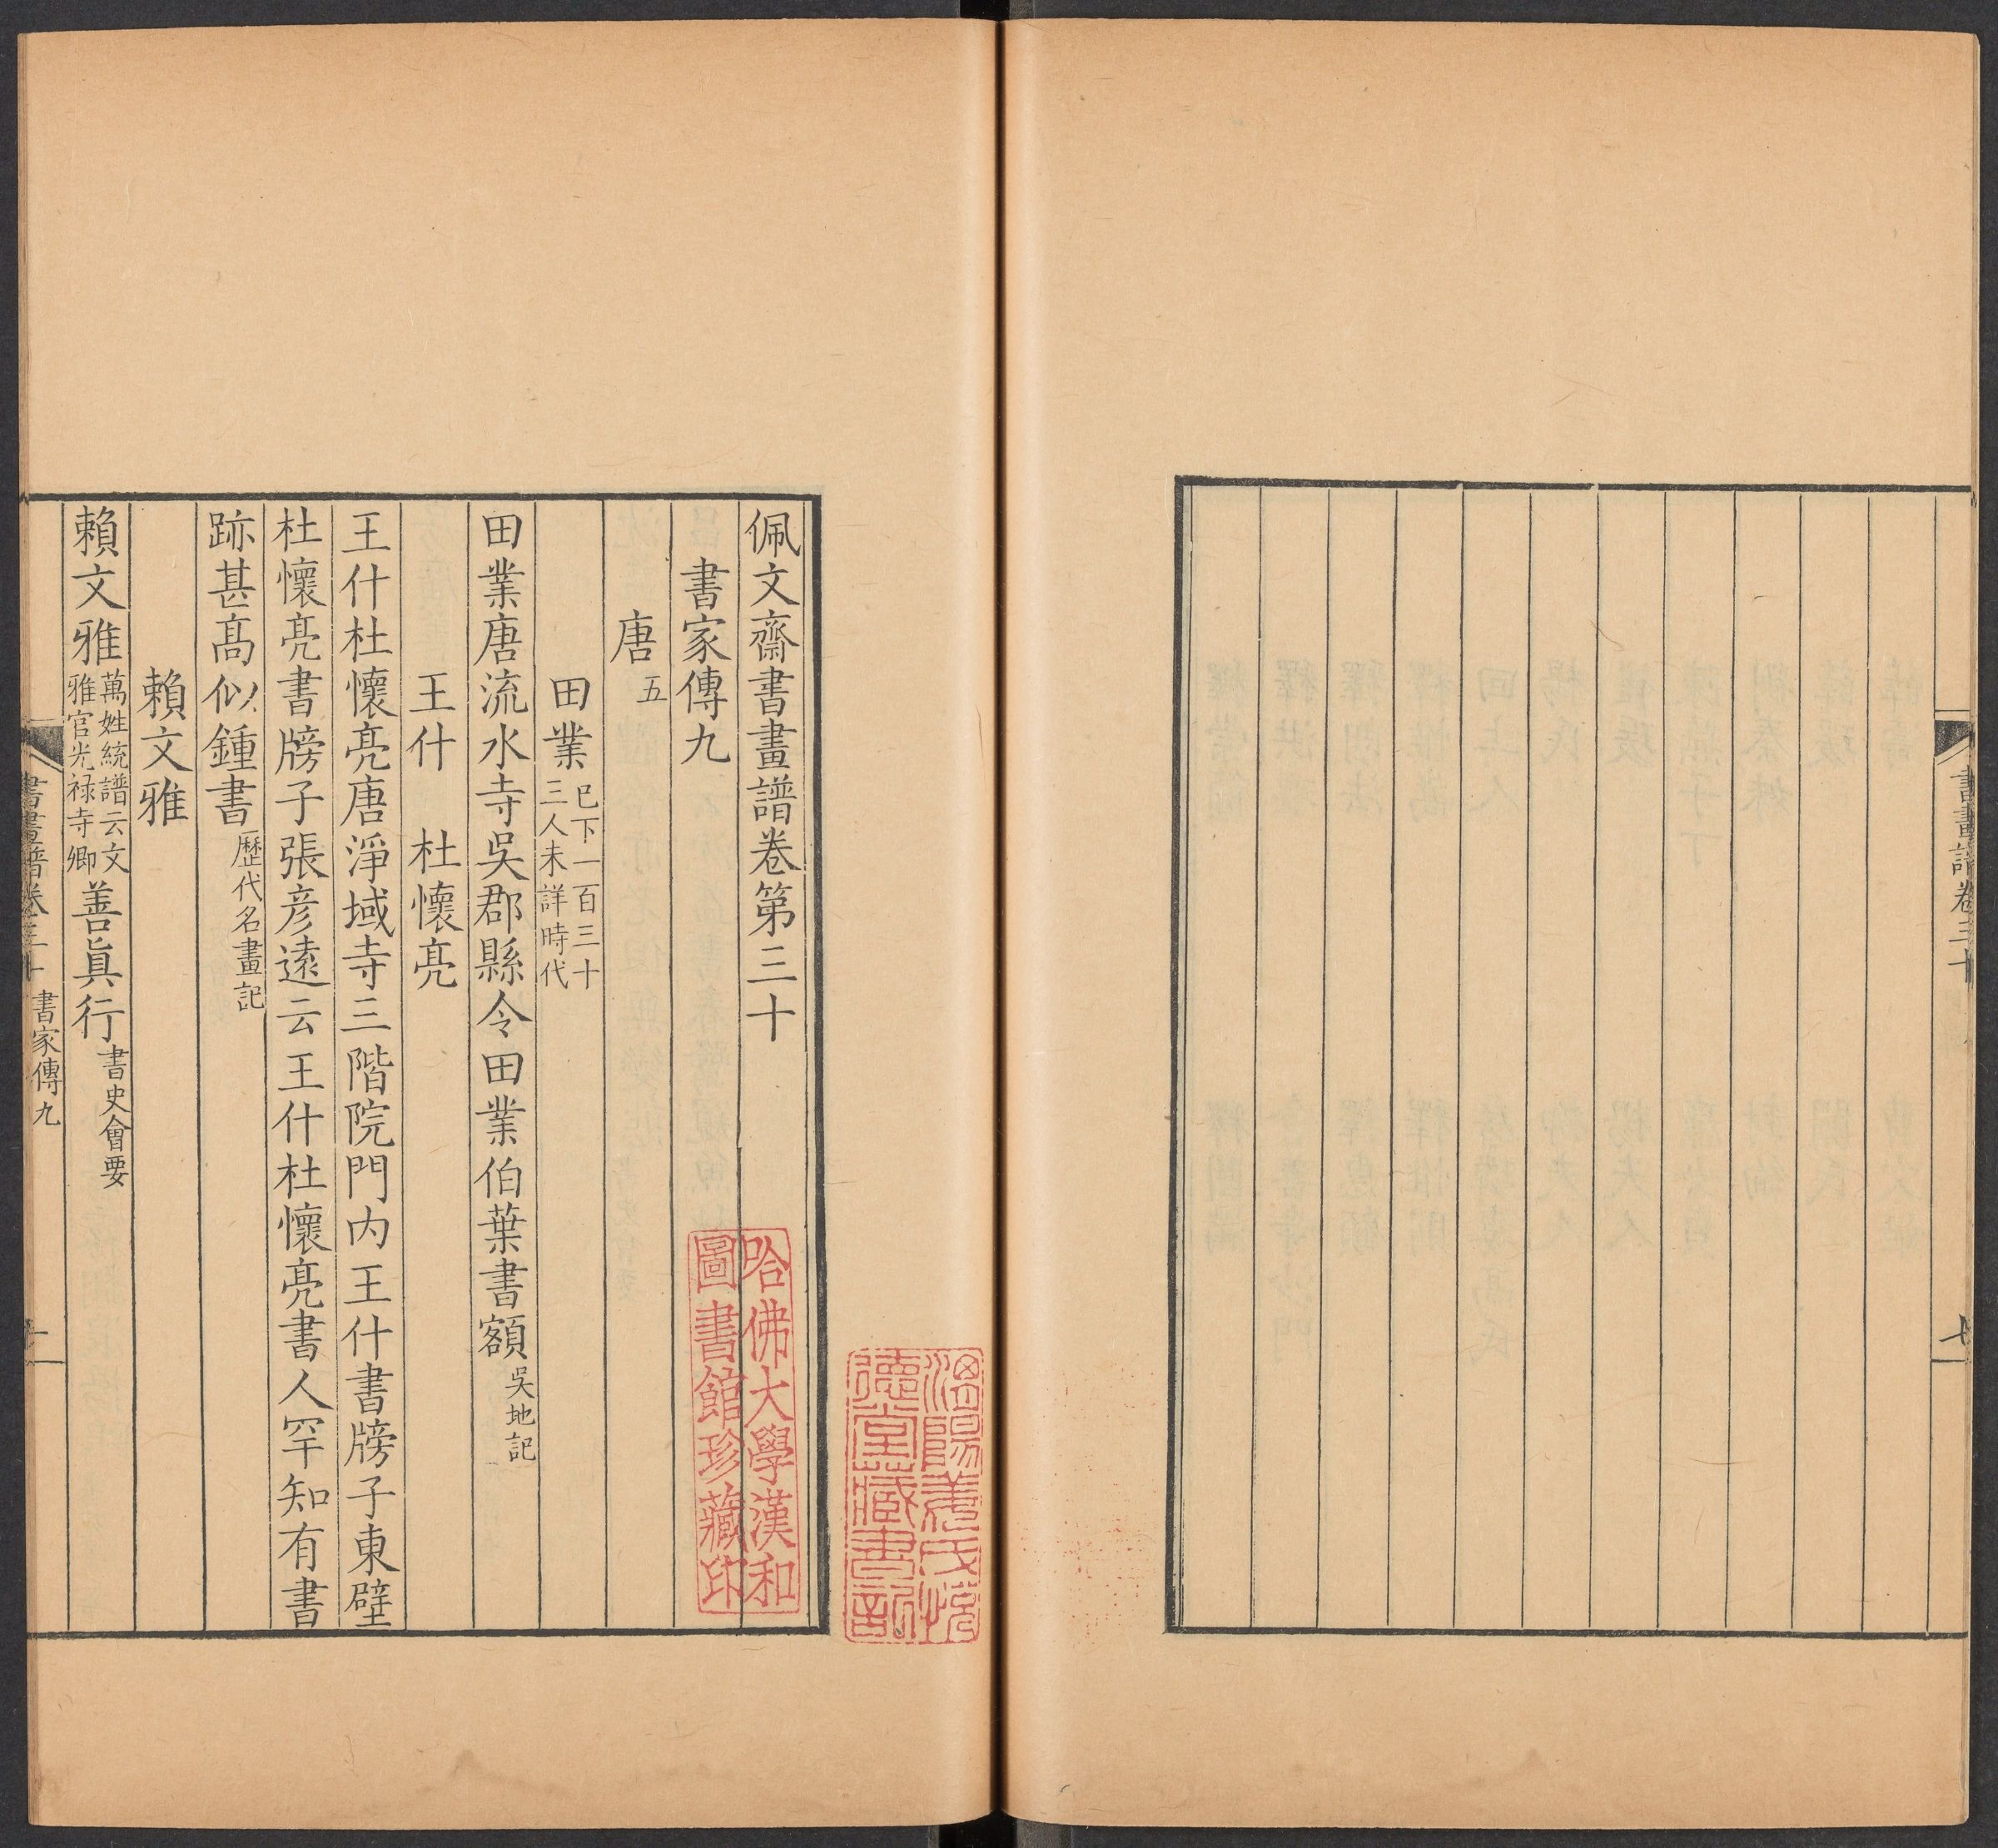 書畫譜卷三十
七
佩文齋書畫譜卷第三十
書家傳九
唐五
田業已下一百三十三人未詳時代
田業唐流水寺吳郡縣令田業伯葉書額吳地記
王什　杜懷亮
王什杜懷亮唐淨域寺三階院門内王什書牓子東壁
杜懷亮書牓子張彥遠云王什杜懷亮書人罕知有書
跡甚高似鍾書歷代名畫記
賴文雅
賴文雅萬姓統譜云文雅官光禄寺卿善眞行書史會要
書畫譜卷三十　書家傳九
哈佛大學漢和
圖書館珍藏印